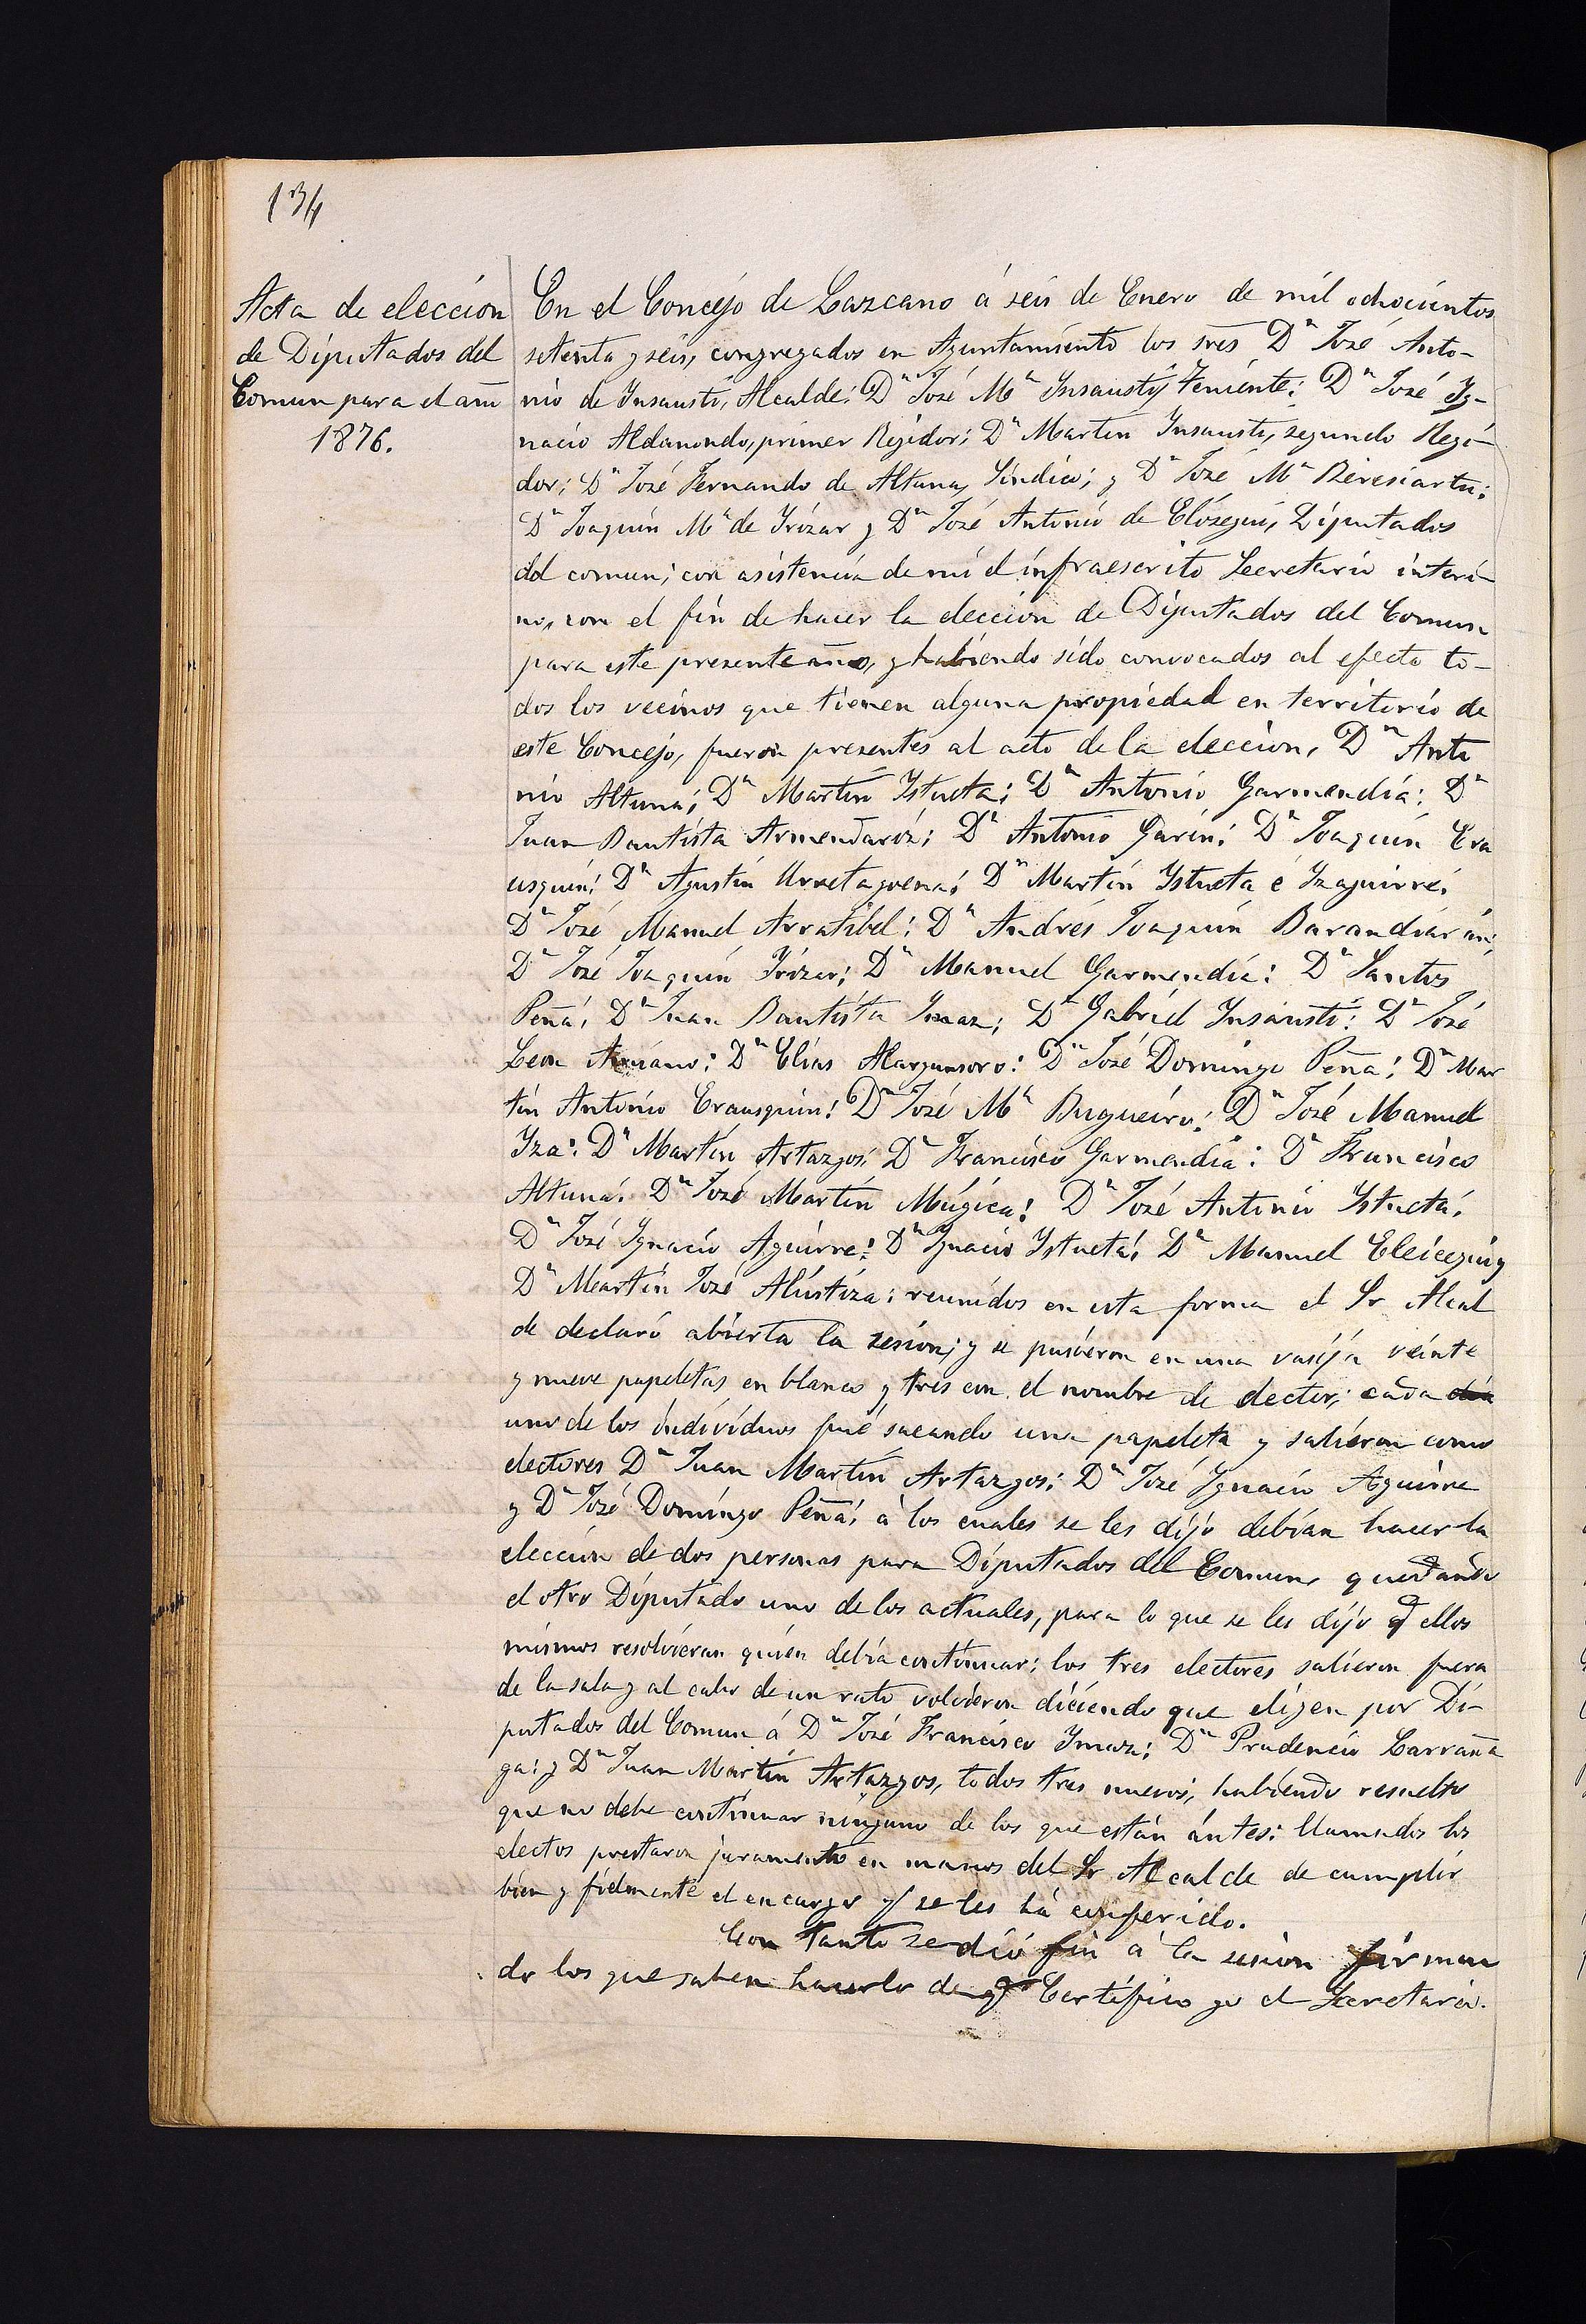 134
Acta de eleccion
de Diputados del
Comun para el año
1876.
En el Concejo de Lazcano á seis de Enero de mil ochocientos
setenta y seis, congregados en Ayuntamiento los sres Dn José Anto-
nio de Ynsausti, Alcalde: Dn José Ma Ynsausti, Teniente: Dn José Yg-
nacio Aldanondo, primer Regidor: Dn Martin Ynsausti, segundo Regi-
dor: Dn José Fernando de Altuna, Síndico; y Dn José Ma Beresiartu:
Dn Joaquin Ma de Yrízar y Dn José Antonio de Elósegui, Diputados
del comun; con asistencia de mí el infraescrito Secretario interi-
no, con el fin de hacer la eleccion de Diputados del Comun
para este presente año, y habiendo sido convocados al efecto to-
dos los vecinos que tienen alguna propiedad en territorio de
este Concejo, fueron presentes al acto de la eleccion, Dn Anto
nio Altuna; Dn Martin Ystueta; Dn Antonio Garmendia: Dn
Juan Bautista Armendariz; Dn Antonio Garin: Dn Joaquin Era
usquin: Dn Agustin Urretagoena: Dn Martin Ystueta é Yzaguirre:
Dn José Manuel Arratibel: Dn Andrés Joaquin Barandiarán:
Dn José Joaquin Yrízar; Dn Manuel Garmendia: Dn Santos
Peña: Dn Juan Bautista Ymaz; Dn Gabriel Ynsausti: Dn José
Leon: Dn Elias: Dn José Domingo Peña: Dn Mar
tin Antonio Erausquin: Dn José Ma Bugueiro: Dn José Manuel
Yza: Dn Martin Artazgos: Dn Francisco Garmendia: Dn Francisco
Altuna: Dn José Martin Múgica: Dn José Antonio Ystueta:
Dn José Ygnacio Aguirre: Dn Ygnacio Ystueta: Dn Manuel Eleicegui y
Dn Martin José Alústiza: reunidos en esta forma el Sr Alcal
de declaró abierta la sesion; y se pusieron en una vasija veinte
y nueve papeletas en blanco y tres con el nombre de elector; cada
uno de los individuos fué sacando una papeleta y salieron como
electores Dn Juan Martin Artazgos: Dn José Ygnacio Aguirre
y Dn José Domingo Peña: á los cuales se les dijo debian hacer la
eleccion de dos personas para Diputados del Comun, quedando
el otro Diputado uno de los actuales, para lo que se les dijo q ellos
mismos resolvieran quien debía continuar; los tres electores salieron fuera
de la sala y al cabo de un rato volvieron diciendo que eligen por Di-
putados del Comun á Dn José Francisco Ymaz: Dn Prudencio Larraña
ga: y Dn Juan Martin Artazgos, todos tres nuevos, habiendo resuelto
que no debe continuar ninguno de los que están ántes: llamados los
electos prestaron juramento en manos del Sr Alcalde de cumplir
bien y fielmente el encargo q se les há conferido.
Con tanto se dió fin á la sesion firman
do los que saben hacerlo de q Certifico yo el Secretario.